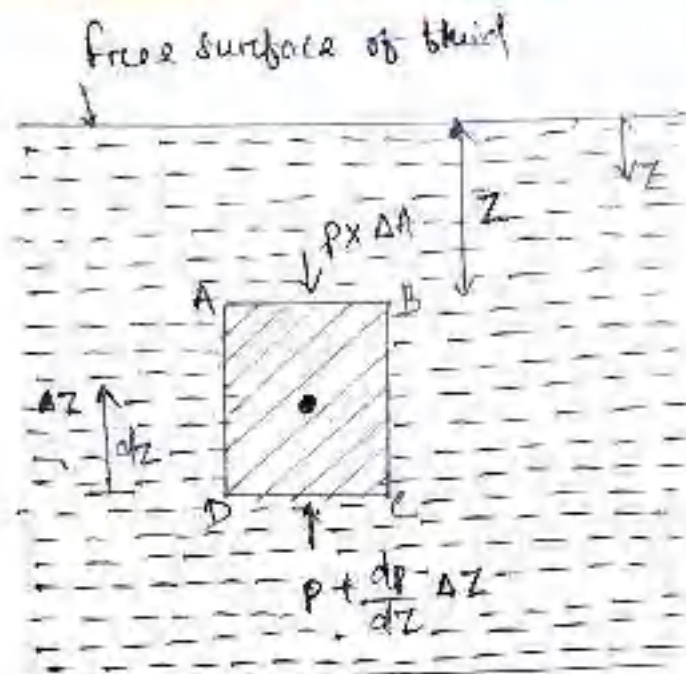 free surface of fluid
Z
Z
p × ΔA
A B
ΔZ
dz
D C
p + dp/dZ ΔZ